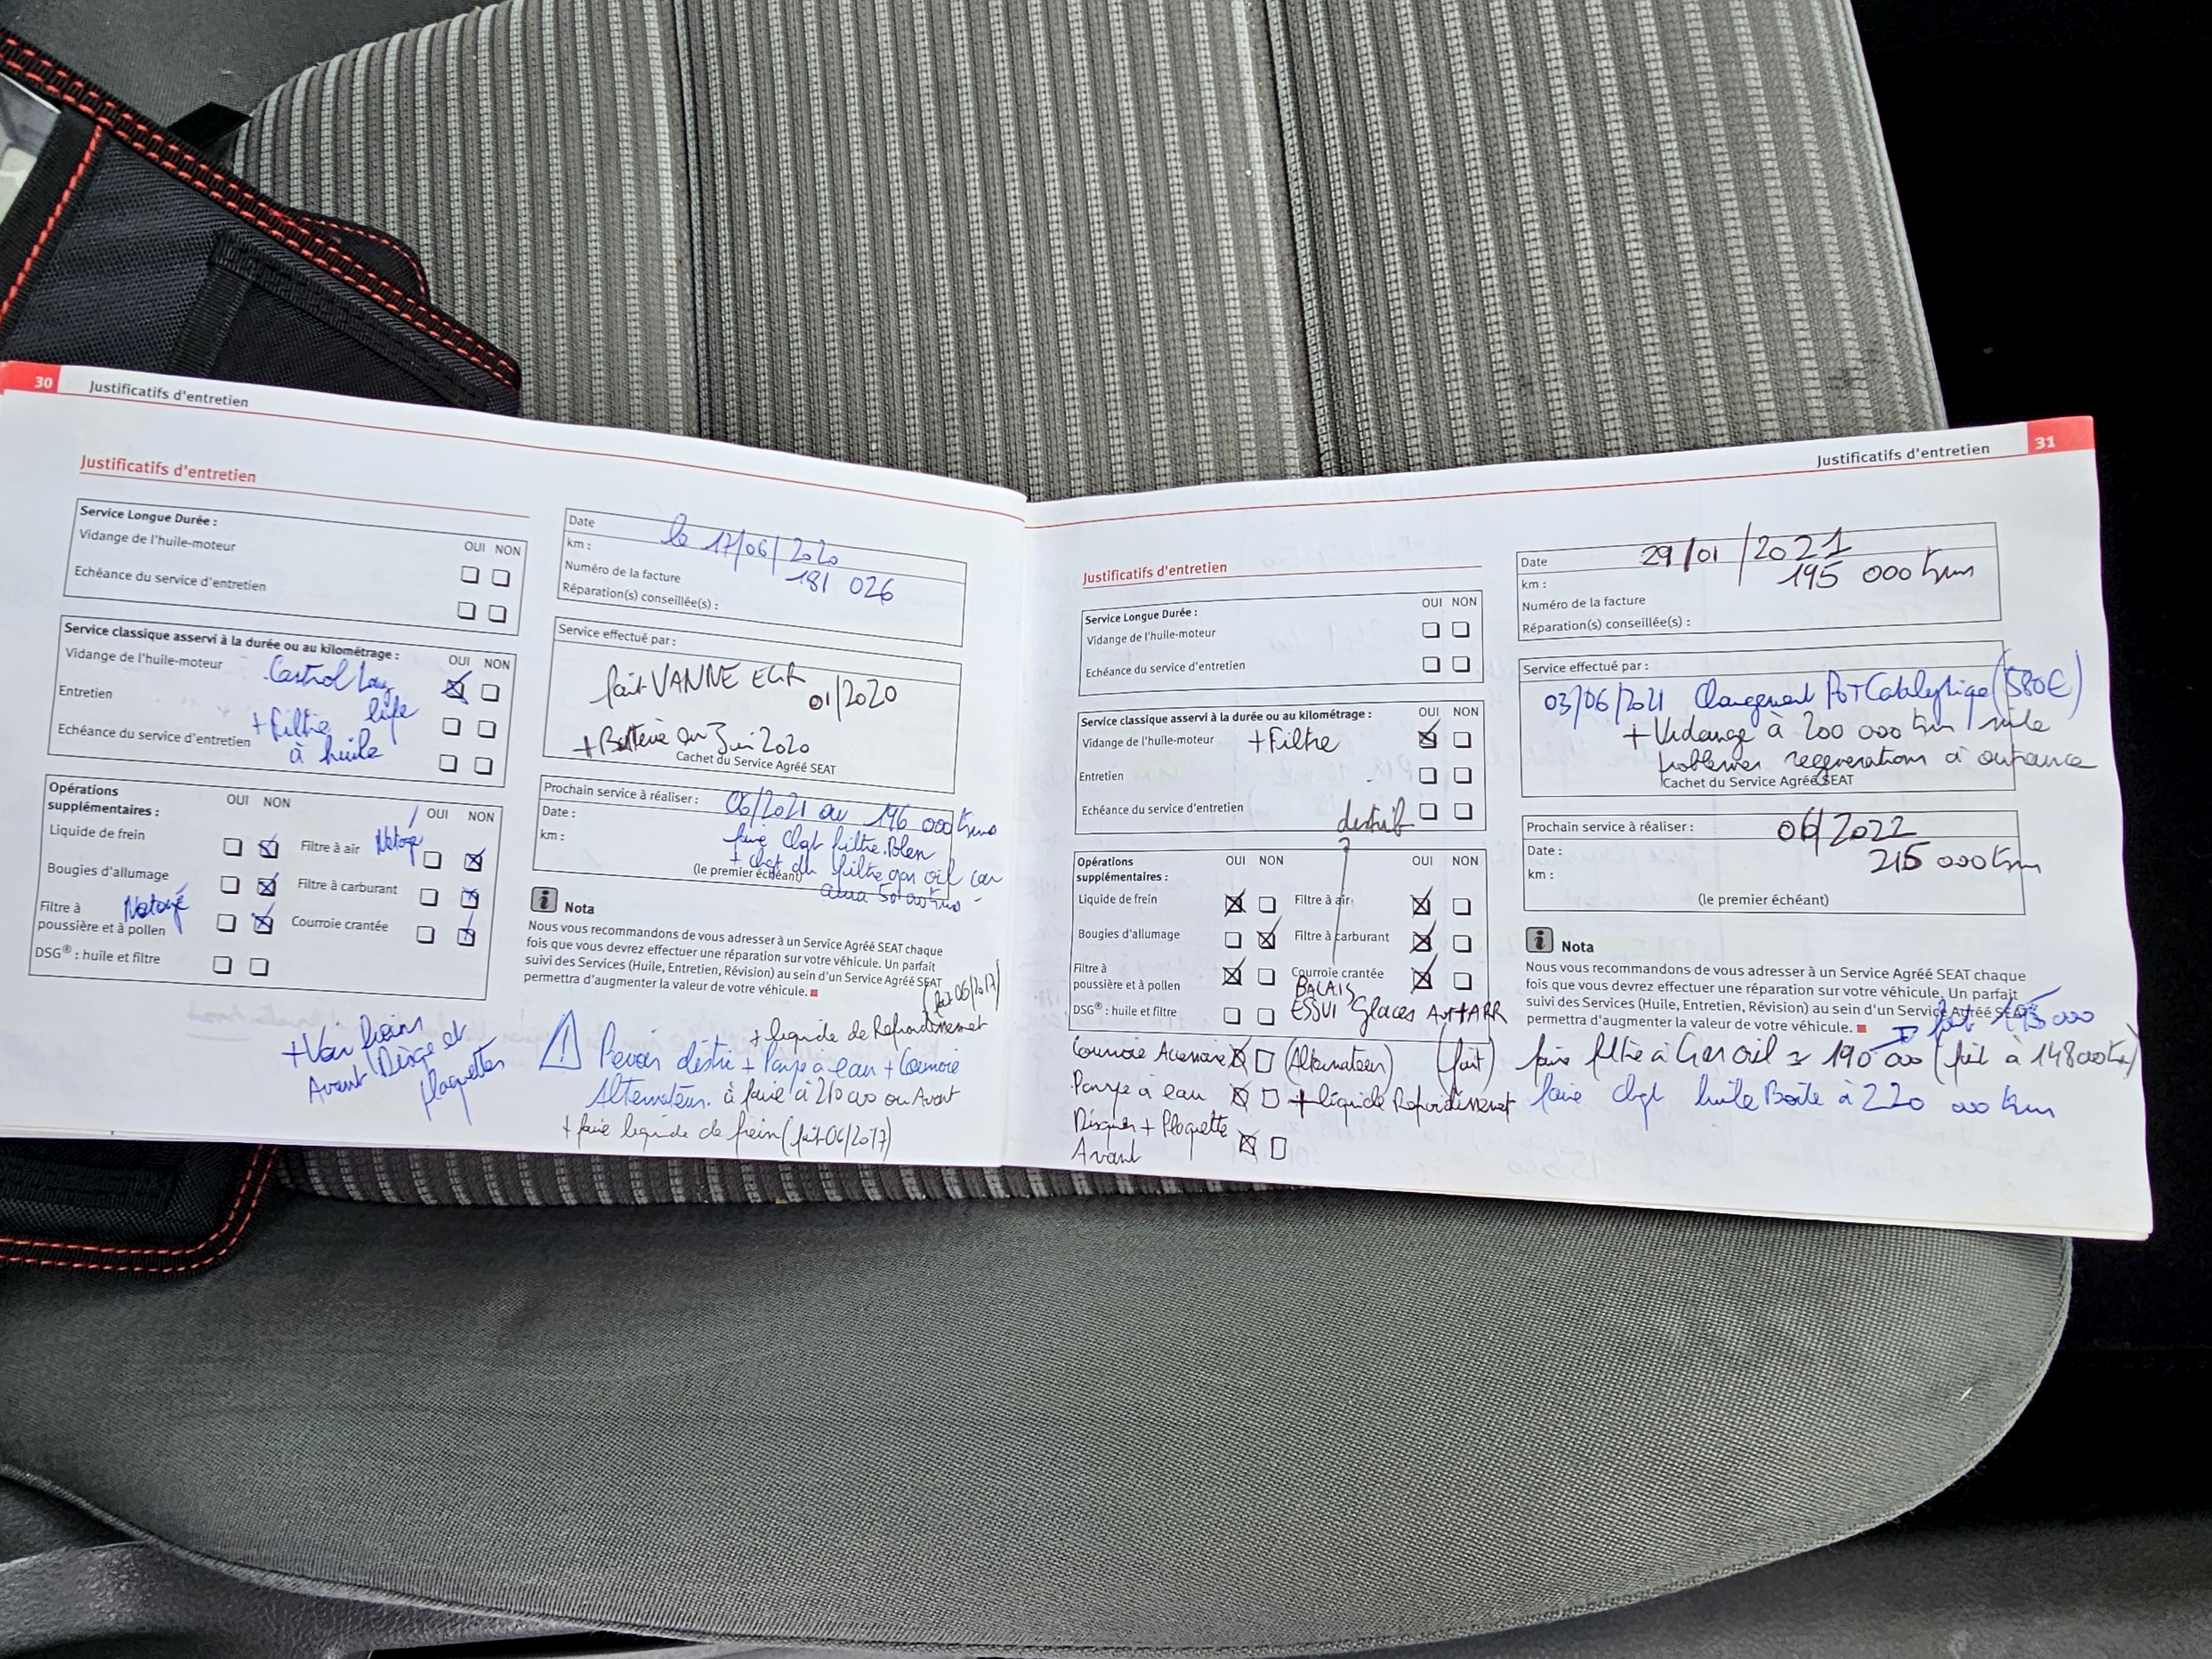 30 Justificatifs d'entretien
Justificatifs d'entretien
Service Longue Durée :
OUI NON
Vidange de l'huile-moteur
Echéance du service d'entretien
Service classique asservi à la durée ou au kilométrage :
OUI NON
Vidange de l'huile-moteur Castrol Long life
Entretien + Filtre à huile
Echéance du service d'entretien
Opérations supplémentaires :
OUI NON OUI NON
Liquide de frein Filtre à air
Bougies d'allumage Filtre à carburant
Filtre à poussière et à pollen Courroie crantée
DSG® : huile et filtre
+ Voir freins
Avant Disge et
plaquettes
Date le 17/06/2020
km : 181 026
Numéro de la facture
Réparation(s) conseillée(s) :
Service effectué par :
fait VANNE EGR
01/2020
+ Batterie en Juin 2020
Cachet du Service Agréé SEAT
Prochain service à réaliser : 06/2021 ou 196 000 kms
Date : faire chgt filtre Polen
km : + chgt du filtre gas oil car
(le premier échéant) aura 50 000 kms
Nota
Nous vous recommandons de vous adresser à un Service Agréé SEAT chaque
fois que vous devrez effectuer une réparation sur votre véhicule. Un parfait
suivi des Services (Huile, Entretien, Révision) au sein d'un Service Agréé SEAT
permettra d'augmenter la valeur de votre véhicule.
(fait 06/2017)
+ liquide de Refroidissement
Prevoir déstri + Pompe à eau + Courroie
Alternateur. à faire à 210 000 ou Avant
+ faire liquide de frein (fait 06/2017)
Justificatifs d'entretien 31
Justificatifs d'entretien
Service Longue Durée :
OUI NON
Vidange de l'huile-moteur
Echéance du service d'entretien
Service classique asservi à la durée ou au kilométrage :
OUI NON
Vidange de l'huile-moteur + Filtre
Entretien
Echéance du service d'entretien distrib
Opérations supplémentaires :
OUI NON OUI NON
Liquide de frein Filtre à air
Bougies d'allumage Filtre à carburant
Filtre à poussière et à pollen Courroie crantée
BALAIS
DSG® : huile et filtre ESSUI Glaces AV+ARR
Courroie Accessoire (Alternateur) (fait)
Pompe à eau + liquide Refroidissement
Disques + Plaquette
Avant
Date 29/01/2021
km : 195 000 kms
Numéro de la facture
Réparation(s) conseillée(s) :
Service effectué par :
03/06/2021 Changement Pot Catalytique (580€)
+ Vidange à 200 000 km suite
problemes regenerations à outrance
Cachet du Service Agréé SEAT
Prochain service à réaliser : 06/2022
Date : 215 000 km
km :
(le premier échéant)
Nota
Nous vous recommandons de vous adresser à un Service Agréé SEAT chaque
fois que vous devrez effectuer une réparation sur votre véhicule. Un parfait
suivi des Services (Huile, Entretien, Révision) au sein d'un Service Agréé SEAT
permettra d'augmenter la valeur de votre véhicule.
fait 195 000
faire filtre à Gas oil 190 000 (fait à 148000 km)
faire chgt huile Boite à 220 000 km